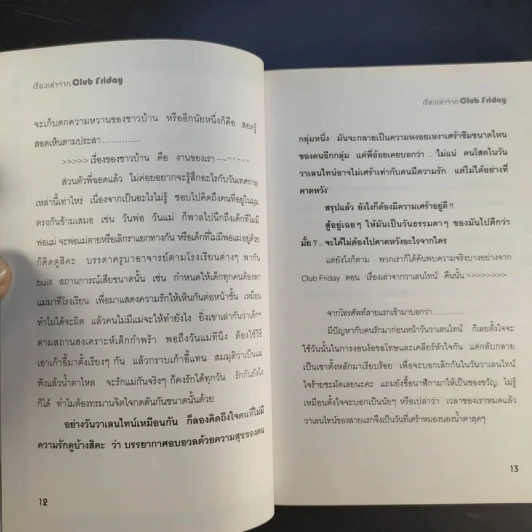 เรื่องเล่าจาก Club Friday
จะเก็บตกความหวานของชาวบ้าน หรืออีกนัยหนึ่งก็คือ สอดรู้
สอดเห็นตามประสา ..............
>>>>> เรื่องของชาวบ้าน คือ งานของเรา ~~^^^^^
ส่วนตัวพี่ฉอดแล้ว ไม่ค่อยอยากจะรู้สึกอะไรกับวันเทศกาล
เหล่านี้เท่าไหร่ เนื่องจากเป็นอะไรไม่รู้ ชอบไปคิดถึงคนที่อยู่ในมุม
ตรงกันข้ามเสมอ เช่น วันพ่อ วันแม่ ก็พาลไปนึกถึงเด็กที่ไม่มี
พ่อแม่ จะพ่อแม่ตายหรือเลิกราแยกทางกัน หรือเด็กที่ไม่มีพ่อแม่อยู่ด้วย
ก็คิดดูสิคะ บรรดาครูบาอาจารย์ตามโรงเรียนต่างๆ พากัน
built สถานการณ์เสียขนาดนั้น เช่น กำหนดให้เด็กทุกคนต้องพา
แม่มาที่โรงเรียน เพื่อมาแสดงความรักให้เห็นกันต่อหน้าชั้น เหมือน
ทำไม่ได้จะผิด แล้วคนไม่มีแม่จะให้ทำยังไง ยิ่งเขาเล่ากันว่าเด็กๆ
ตามสถานสงเคราะห์เด็กกำพร้า พอถึงวันแม่ทีนึง ต้องใช้วิธี
เอาเก้าอี้มาตั้งเรียงๆ กัน แล้วกราบเก้าอี้แทน สมมุติว่าเป็นแม่
ฟังแล้วน้ำตาไหล จะรักแม่กันจริงๆ ก็คงรักได้ทุกวัน รักกันยังไง
ก็ได้ ทำไมต้องทรมานจิตใจกดดันกันขนาดนั้นด้วย
อย่างวันวาเลนไทน์เหมือนกัน ก็ลองคิดถึงใจคนที่ไม่มี
ความรักดูบ้างสิคะ ว่า บรรยากาศอบอวลด้วยความสุขของคน
12
เรื่องเล่าจาก Club Friday
กลุ่มหนึ่ง มันจะกลายเป็นความหงอยเหงาเศร้าซึมขนาดไหน
ของคนอีกกลุ่ม แต่พี่อ้อยเคยบอกว่า .. ไม่แน่ คนโสดในวัน
วาเลนไทน์อาจไม่เศร้าเท่ากับคนมีความรัก แต่ไม่ได้อย่างที่
คาดหวัง'
สรุปแล้ว ยังไงก็ต้องมีความเศร้าอยู่ดี !!
สู้อยู่เฉยๆ ให้มันเป็นวันธรรมดาๆ ของมันไปดีกว่า
มั้ย ? .. จะได้ไม่ต้องไปคาดหวังอะไรจากใคร
แต่ยังไงก็ตาม พวกเราก็ได้ค้นพบความจริงบางอย่างจาก
Club Friday ตอน 'เรื่องเล่าจากวาเลนไทน์' คืนนั้น >>>>>>>>
จากโทรศัพท์สายแรกเข้ามาบอกว่า ..............
มีปัญหากับคนรักมาก่อนหน้าวันวาเลนไทน์ ก็เลยตั้งใจจะ
ใช้วันนั้นในการงอนง้อขอโทษและเคลียร์หัวใจกัน แต่กลับกลาย
เป็นเขาตั้งหลักมาเรียบร้อย เพื่อจะบอกเลิกกันในวันวาเลนไทน์
ใจร้ายชะมัดเลยนะคะ แถมยังซื้อนาฬิกามาให้เป็นของขวัญ ไม่รู้
เหมือนตั้งใจจะบอกเป็นนัยๆ หรือเปล่าว่า เวลาของเราหมดแล้ว
วาเลนไทน์ของสายแรกจึงเป็นวันที่เศร้าหมองนองน้ำตาสุดๆ
13